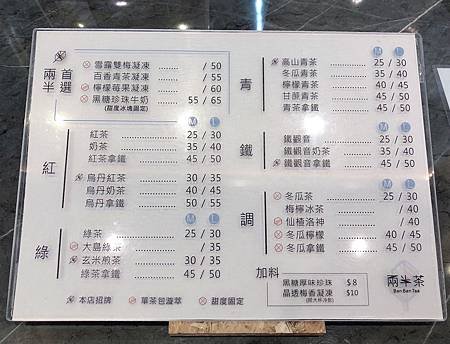 兩半 首選
雪露雙梅凝凍 ........... / 50
百香青茶凝凍 ........... / 50
檸檬莓果凝凍 ........... / 60
黑糖珍珠牛奶 ........... 55 / 65
(甜度冰塊固定)
紅
M L
紅茶 ........... 25 / 30
奶茶 ........... 35 / 40
紅茶拿鐵 ........... 45 / 50
烏丹紅茶 ........... 30 / 35
烏丹奶茶 ........... 40 / 45
烏丹拿鐵 ........... 50 / 55
綠
M L
綠茶 ........... 25 / 30
大島綠茶 ........... / 35
玄米煎茶 ........... 30 / 35
綠茶拿鐵 ........... 45 / 50
本店招牌 單茶包漩萃 甜度固定
青
M L
高山青茶 ........... 25 / 30
冬瓜青茶 ........... 35 / 40
檸檬青茶 ........... 40 / 45
甘醇青茶 ........... 45 / 55
青茶拿鐵 ........... 45 / 50
鐵
M L
鐵觀音 ........... 25 / 30
鐵觀音奶茶 ........... 35 / 40
鐵觀音拿鐵 ........... 45 / 50
調
M L
冬瓜茶 ........... 25 / 30
梅檸冰茶 ........... / 40
仙楂洛神 ........... / 40
冬瓜檸檬 ........... 40 / 45
冬瓜拿鐵 ........... 45 / 50
加料
黑糖厚味珍珠 $8
晶透梅香凝凍 $10
(限大杯冷飲)
兩半茶
Ban Ban Tea